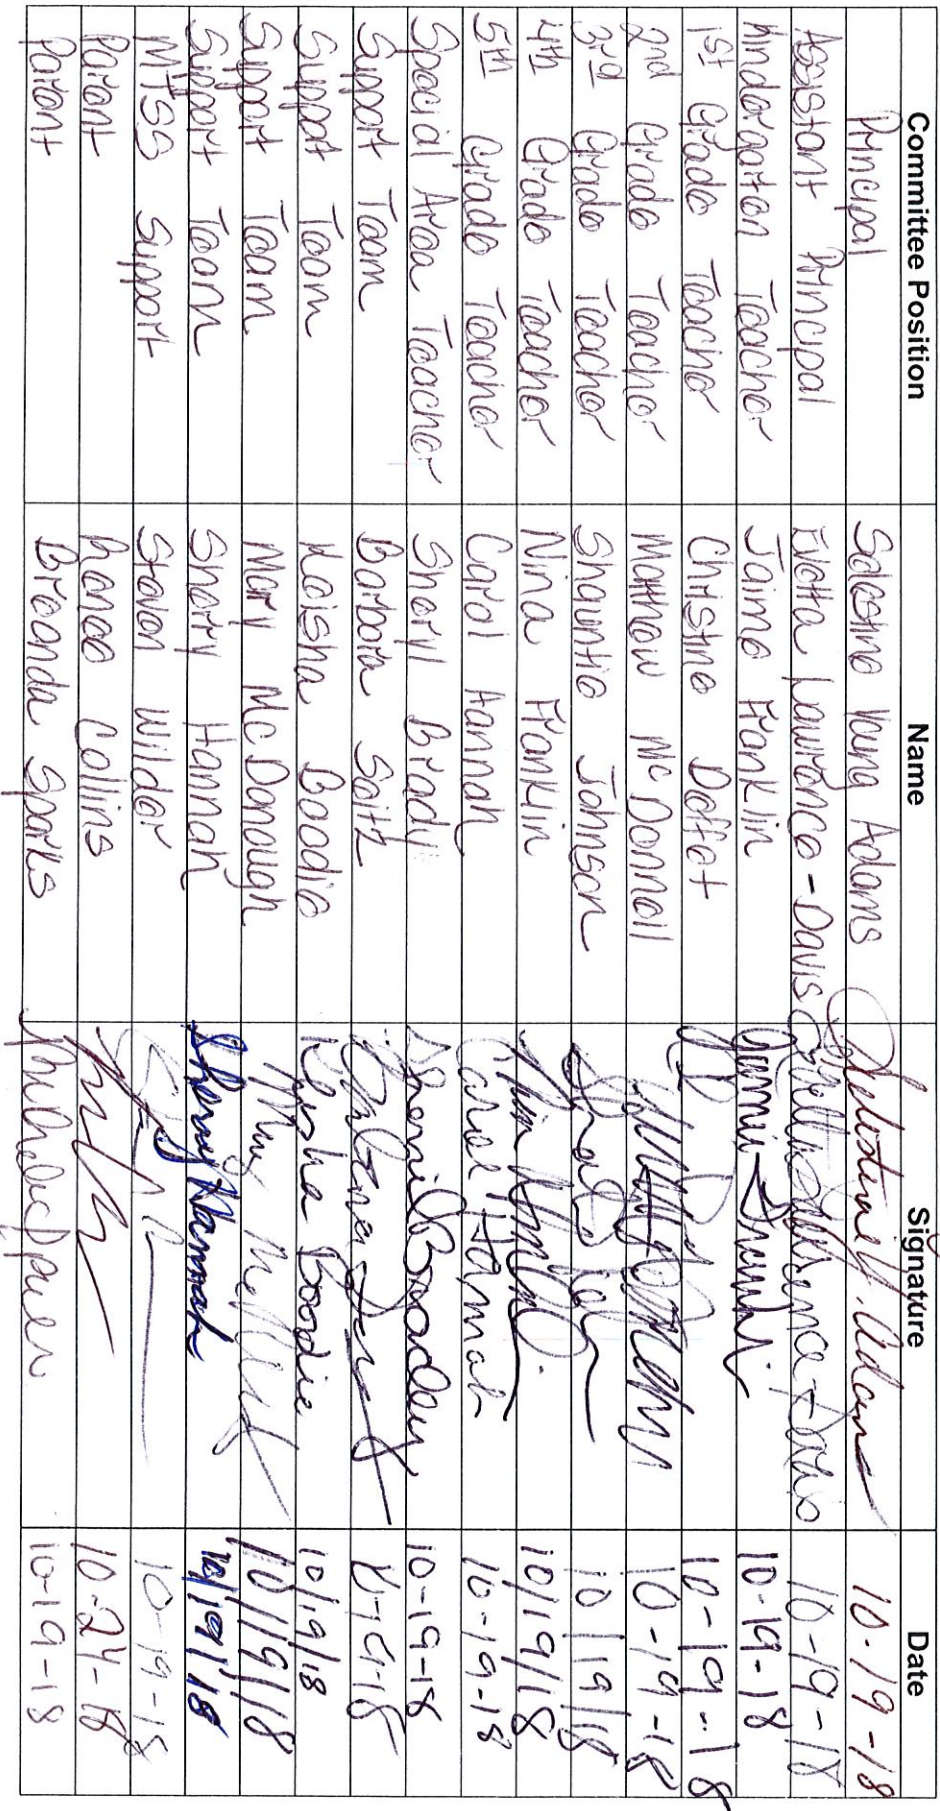 Committee Position Name Signature Date
Principal Salestino Young Adams 10-19-18
Assistant Principal Evetta Lawrence-Davis 10-19-18
Kindergarten Teacher Jaime Franklin 10-19-18
1st Grade Teacher Christine Deffet 10-19-18
2nd Grade Teacher Matthew McDonnell 10-19-18
3rd Grade Teacher Shauntie Johnson 10/19/18
4th Grade Teacher Nina Franklin 10/19/18
5th Grade Teacher Carol Hannah Carol Hannah 10-19-18
Special Area Teacher Sheryl Brady 10-19-18
Support Team Barbara Seitz 10-19-18
Support Team Keisha Boodie Keisha Boodie 10/19/18
Support Team Mary McDonough 10/19/18
Support Team Sherry Hannah Sherry Hannah 10/19/18
MTSS Support Steven Wilder 10-19-18
Parent Renee Collins 10-24-18
Parent Breanda Sparks 10-19-18